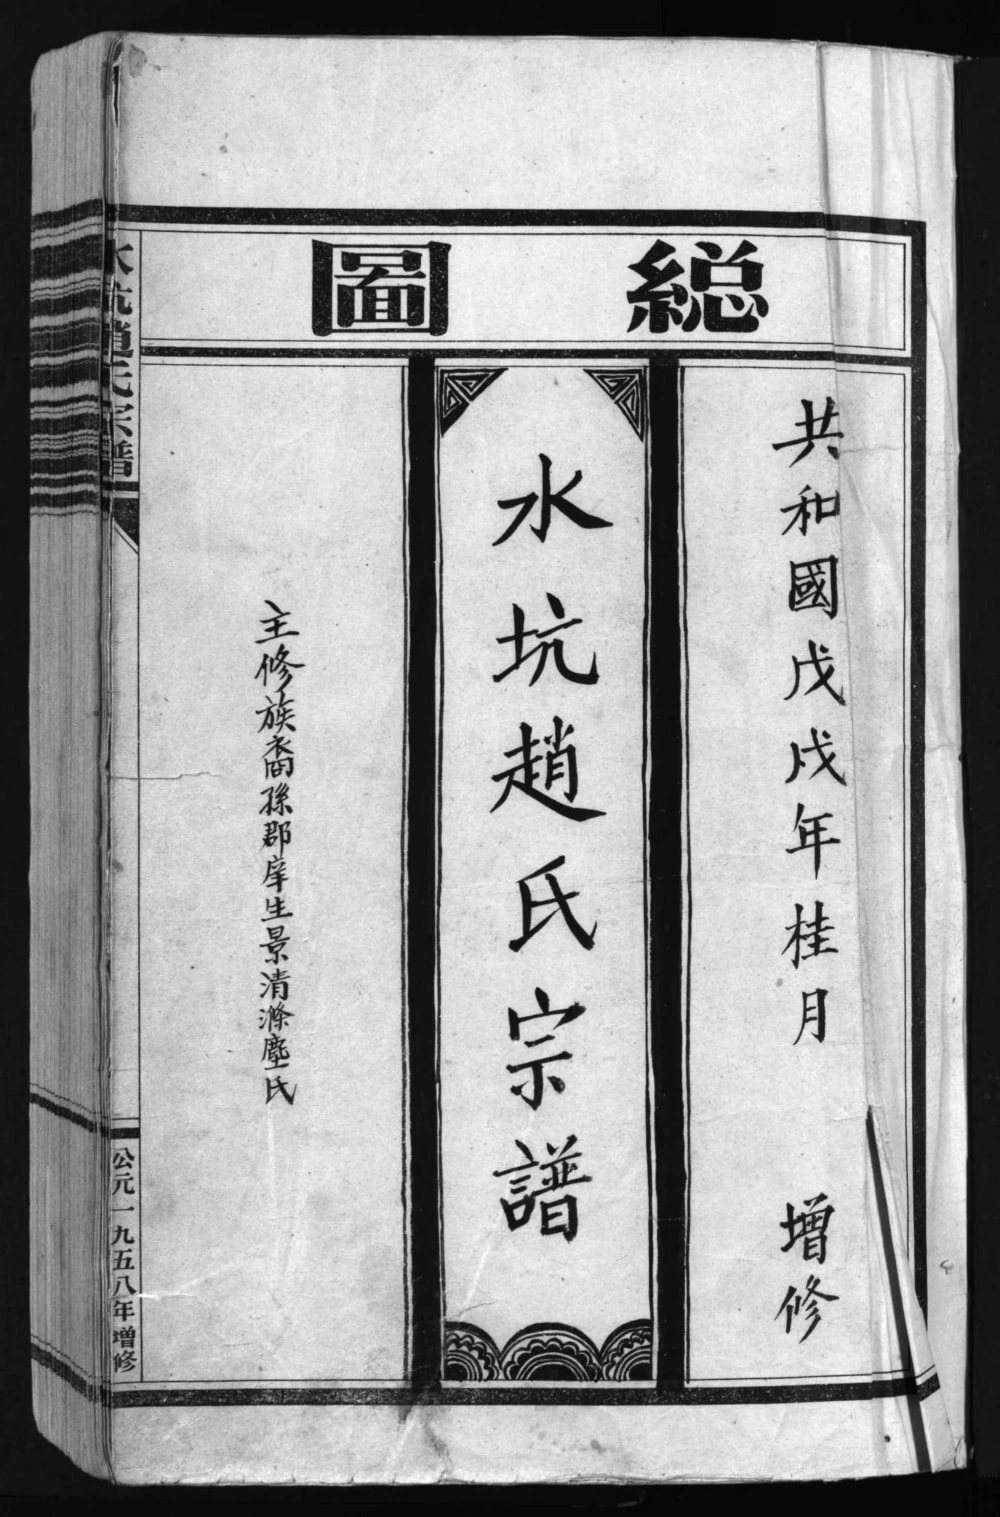 総圖
共和國戊戌年桂月 增修
水坑趙氏宗譜
主修族裔孫郡庠生景清滌塵氏
水坑趙氏宗譜
公元一九五八年增修